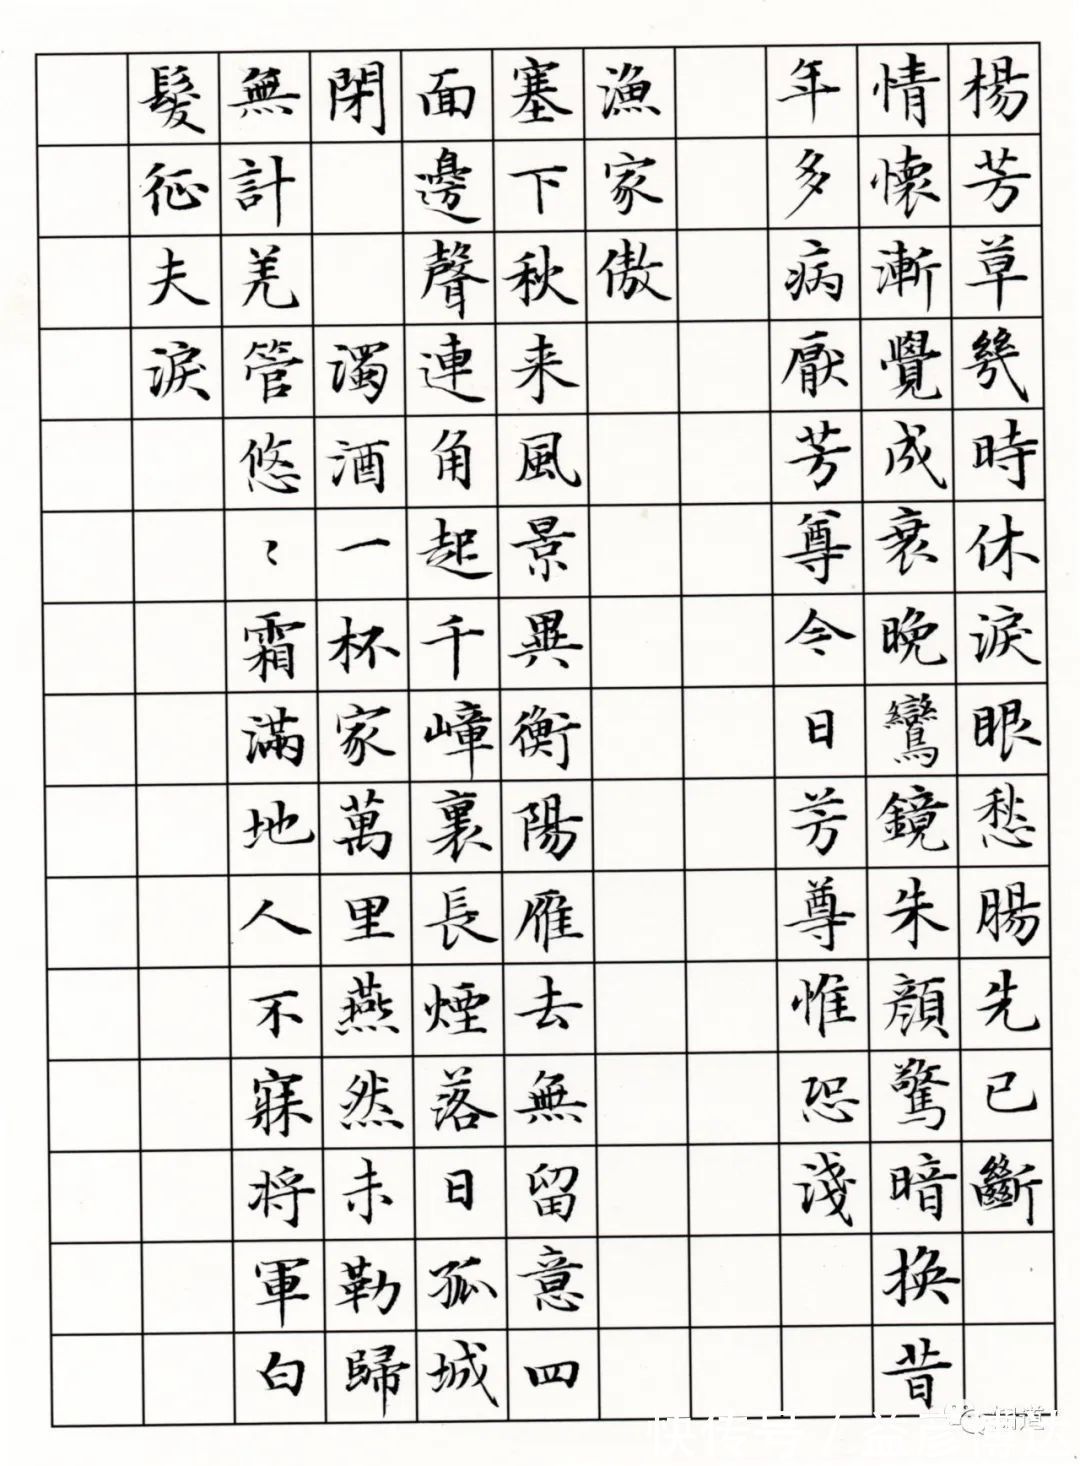 楊芳草幾時休淚眼愁腸先已斷
情懷漸覺成衰晚鸞鏡朱顔驚暗換昔
年多病厭芳尊今日芳尊惟恐淺
漁家傲
塞下秋来風景異衡陽雁去無留意四
面邊聲連角起千嶂裏長煙落日孤城
閉 濁酒一杯家萬里燕然未勒歸
無計羌管悠〻霜滿地人不寐将軍白
髮征夫淚